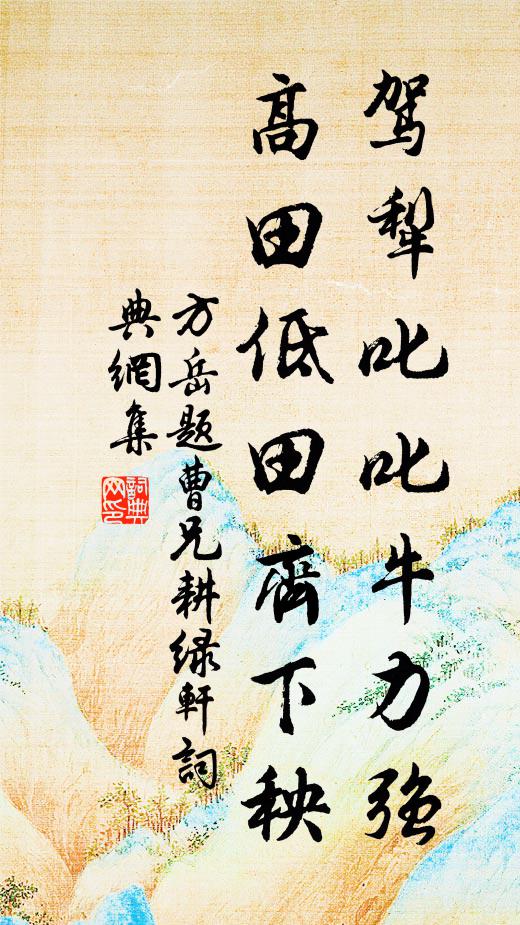 驾犁叱叱牛力强
高田低田齊下秧
方岳题曹兄耕绿軒詞
典網集
詞典网印